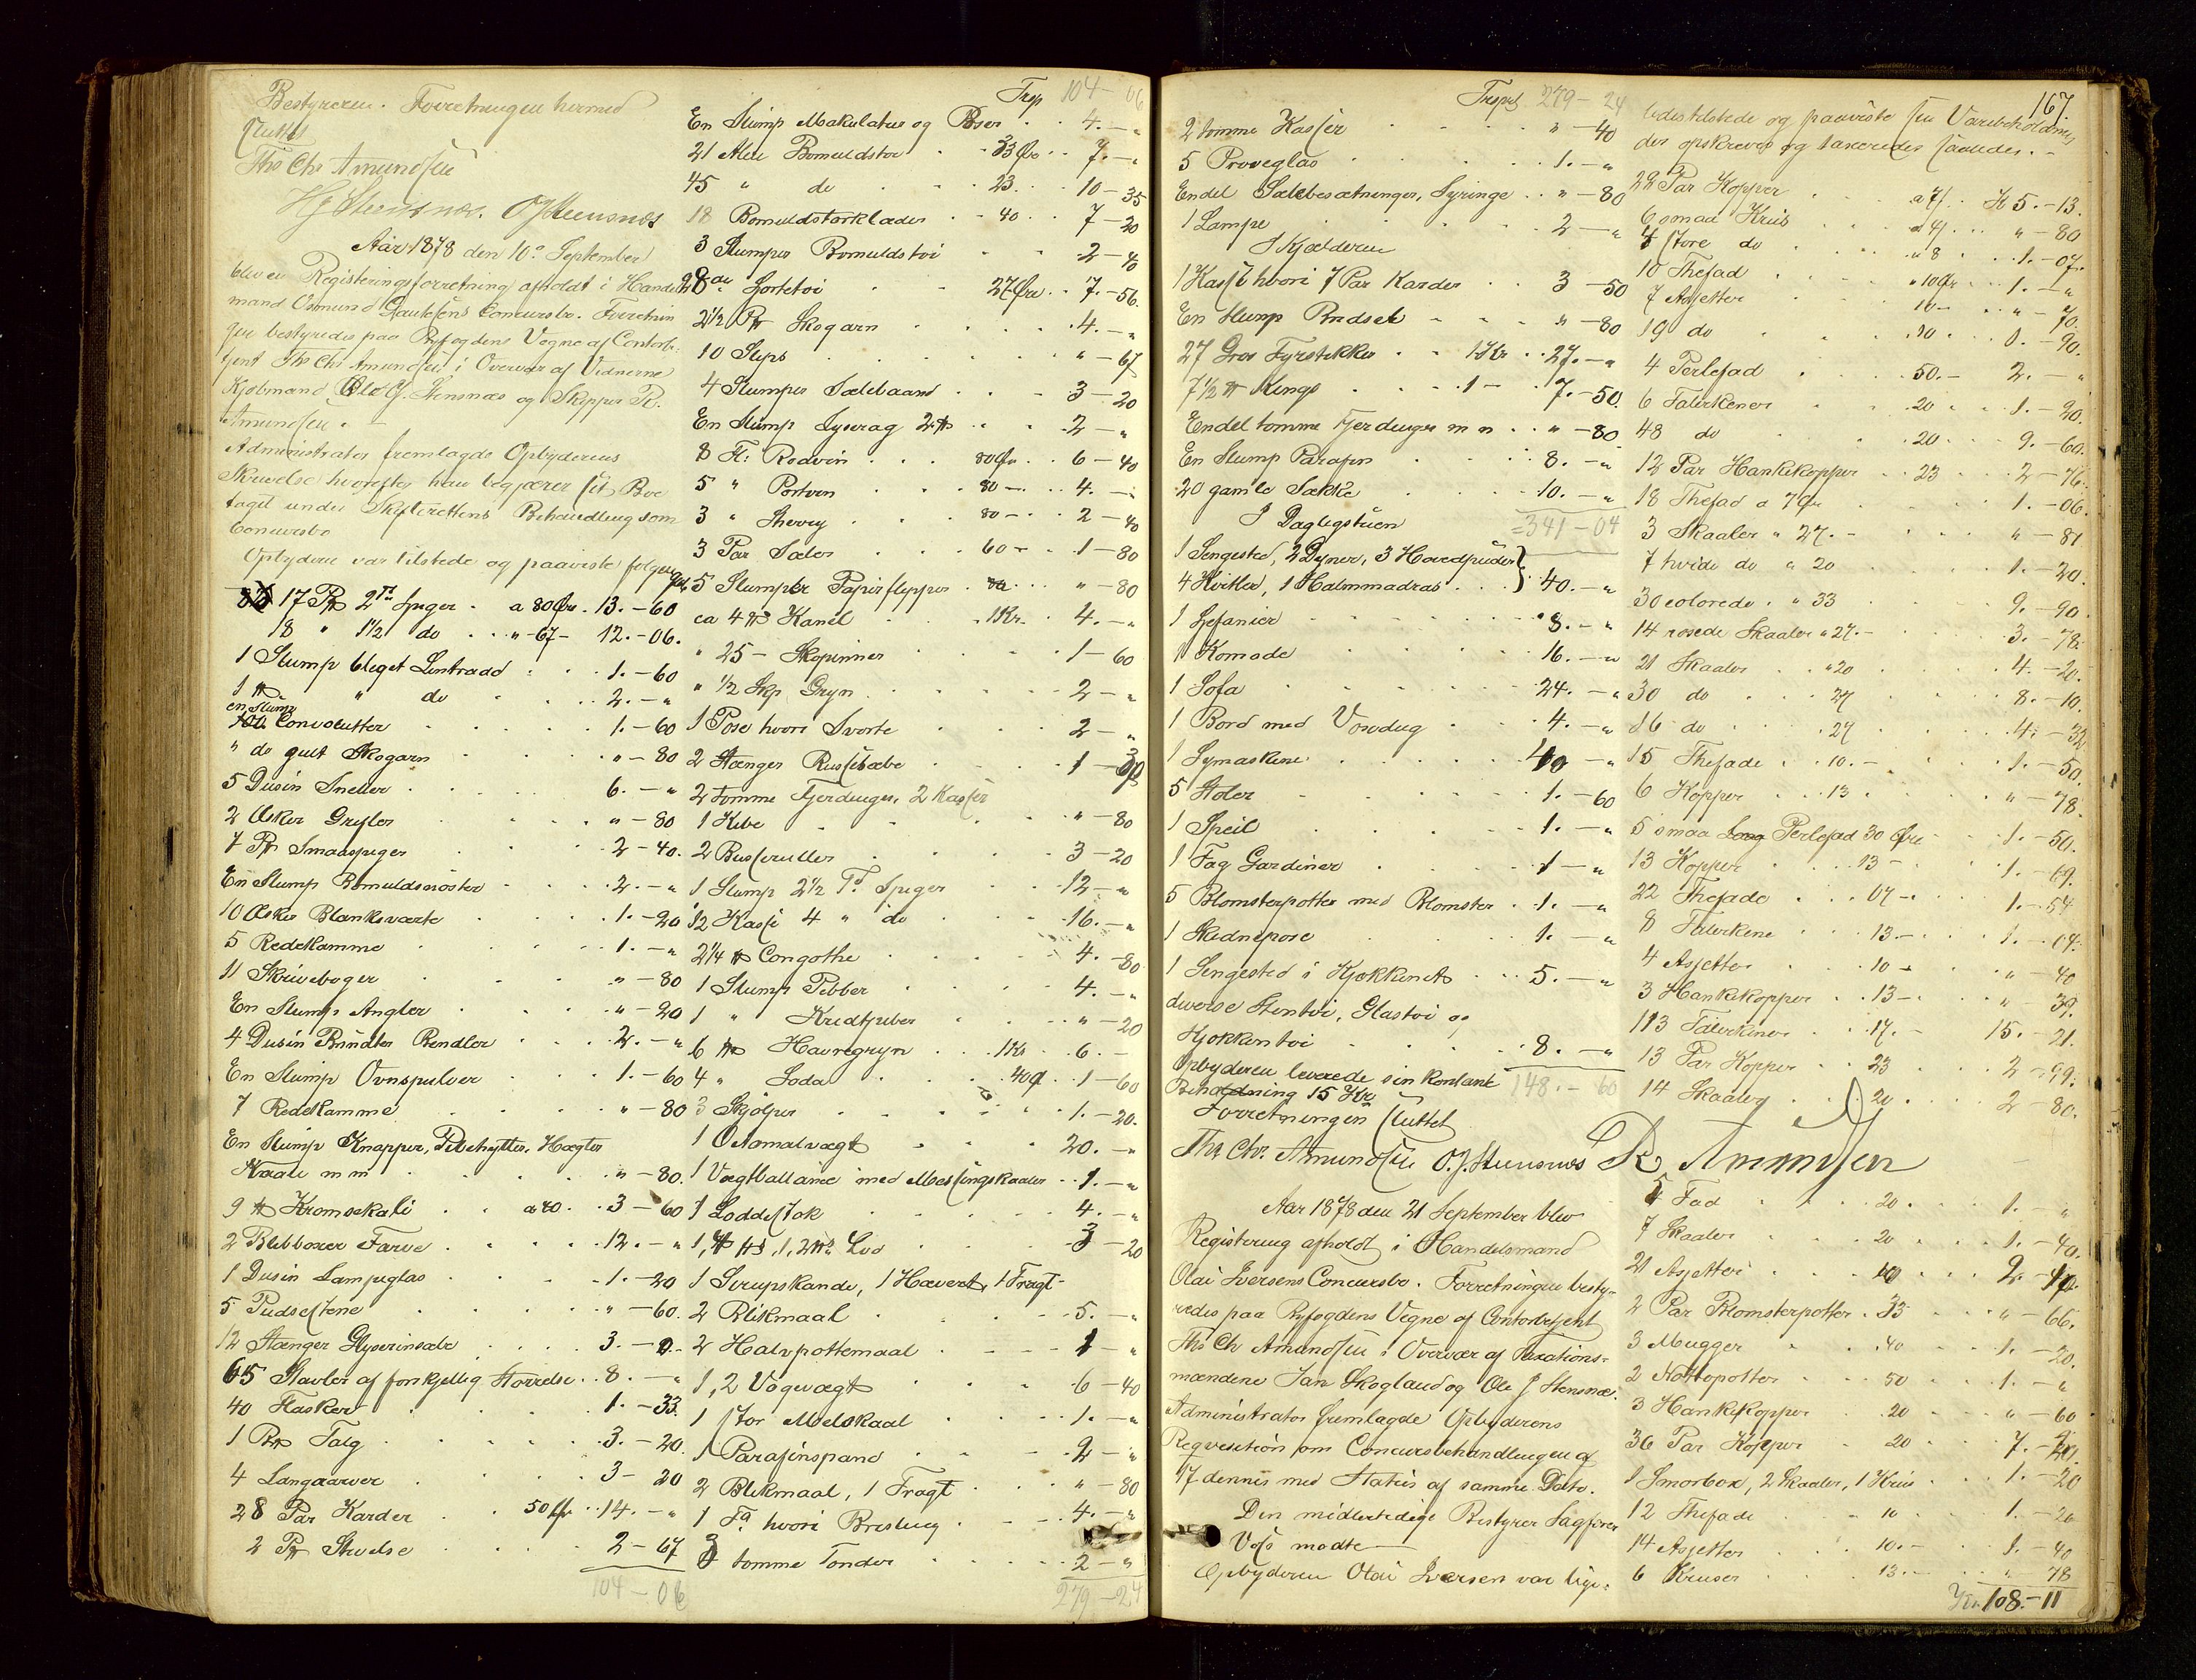 Bestyreren. Forretningen hermed
sluttet
Ths Chr Amundsen
O J Stensnæs
Aar 1878 den 10de September
blev en Registeringsforretning afholdt i Handels
mand Osmund Gautesens Concursbo. Forretnin
gen bestyredes paa Byfogdens Vegne af Contorbe-
tjent Ths Chr Amundsen i Overvær af Vidnerne
Kjøbmand Ole J. Stensnæs og Skipper R.
Amundsen. -
Administrator fremlagde Opbyderens
Skrivelse hvorefter han begjærer sit Boe
taget under Skifterettens Behandling som
Concursbo
Opbyderen var tilstede og paaviste følgende
17 P 2 Ts Spiger . a 80 Øre . 13. - 60
18 " 1½ do . . " - 67 - 12. - 06.
1 Slump bleget Lintraad . . 1. - 60
1 ℔ " do . . 2. - "
en Slump
Convolutter . . 1. - 60
" do guult Skogarn . . " - 80
5 Dusin Sneller . . 6. - "
2 Æsker Grifler . . " - 80
7 P Smaaspiger . . 2 - 40.
En Slump Bomuldsnøster . . 2. - "
10 Æsker Blanksværte . . 1. - 20
5 Redekamme . . 1. - "
11 Skrivebøger . . " - 80
En Slump Angler . . " - 20
4 Dusin Bundter Bendler . . 2. - "
En Slump Ovnspulver . . 1. - 60
7 Redekamme . . " - 80
En Slump Knapper, Hægter
Naale m m . . " - 80.
9 ℔ Kromsekali . . a 40 . . 3 - 60
2 Blikboxer Farve . . 12. - "
1 Dusin Lampeglas . . 1. - 20
5 Pudsestene . . " - 60.
12 Stænger Glyserinsæbe . . 3. - "
65 Tavler af forskjellig Størrelse . . 8. - "
40 Flasker . . 1. - 33.
1 B℔ Talg . . 3. - 20.
4 Langaarver . . 3 - 20
28 Par Karder . . 50 Øre . . 14. - "
2 P Stivelse . . 2 - 67
104 - 06
Trsp 104 - 06
En Slump Makulatur og Poser . . 4. - "
21 Alen Bomuldstøi . . 33 Øre . . 7. - "
45 " do . . 23 . . 10 - 35
18 Bomuldstørklæder . . 40 . . 7 - 20
3 Slumper Bomuldstøi . . 2 - 40
28 al Skjortetøi . . 27 Øre . . 7. - 56.
2½ P Skogarn . . 4. - "
10 Slips . . " - 67
4 Slumper Sælebaand . . 3 - 20
En Slump Lyserag 2 ℔ . . 2 - "
8 Fl: Rødvin . . 80 Øre . . 6 - 40
5 " Portvin . . 80 - . . 4. - "
3 " Sherry . . 80 - . . 2 - 40
3 Par Sæler . . 60 - . . 1 - 80
5 Slumper Papirflipper . . " - 80
ca 4 ℔ Kanel . . 1 Kr. . . 4. - "
" 25 - Skopinner . . 1 - 60
" ½ Skp Gryn . . 2 - "
1 Pose hvori Sværte . . 2 - "
2 Stænger Russesæbe . . 1 -
2 tomme Fjerdinger, 2 Kasser
1 Kibe . . " - 80
2 Busseruller . . 3 - 20
1 Slump 2½ Ts Spiger . . 12 - "
½ Kasse 4 " do . . 16. - "
2¼ ℔ Congothe . . 4. - 80
1 Slump Pebber . . 4. - "
1 " Kridtpiber . . " - 20
6 ℔ Havregryn . . 1 Kr . . 6. -
4 " Soda . . 40 Ø . . 1 - 60
3 Skjølper . . 1. - 20.
1 Desimalvægt . . 20. - "
1 Vægtballance med Messingskaaler . . 1. - "
1 Loddestok . . 4. - "
1, ½ ℔, 1, 2 ℔ Lod . . 3 - 20
1 Sirupskande, 1 Hævert, 1 Tragt -
2 Blikmaal . . 5. - "
2 Halvpottemaal . . 1 - "
1, 2 Vogvægt . . 6 - 40
1 stor Melskaal . . 1. - "
1 Parafinspand . . 2 - "
2 Blikmaal, 1 Tragt . . " - 80
1 Fd hvori Brisling . . 4. - "
3 tomme Tønder . . 2 - "
279 - 24
167.
Trspt 279 - 24
2 tomme Kasser . . " - 40
5 Prøveglas . . 1. - "
Endel Sælebesætninger, Syringe . . " - 80
1 Lampe . . 2 - "
I Kjælderen
1 Kasse hvori 7 Par Karder . . 3 - 50
En Slump Rudsel . . " - 80
27 Gros Fyrstikker . . 1 Kr . . 27. - "
7½ ℔ Kings . . 1 - . . 7. - 50.
Endel tomme Fjerdinger m m . . " - 80
En Slump Parafin . . 8. - "
20 gamle Sække . . 10. - "
I Dagligstuen =341 - 04
1 Sengested, 2 Dyner, 3 Hovedpuder
4 Hvitler, 1 Halmmadras . . 40. - "
1 Chefonier . . 8. - "
1 Komode . . 16. - "
1 Sofa . . 24. - "
1 Bord med Voxdug . . 4. - "
1 Symaskine . . 40 - "
5 Stoler . . 1. - 60
1 Speil . . 1. - "
1 Fag Gardiner . . 1 - "
5 Blomsterpotter med Blomster . . 1. - "
1 Skidnepose . . 1. - "
1 Sengested i Kjøkkenet . . 5. - "
diverse Stentøi, Glastøi og
Kjøkkentøi . . 8. - "
Opbyderen leverede sin kontante 148. - 60
Beholdning 15 Kr
Forretningen sluttet
Ths Chr. Amundsen O. J. Stensnæs R. Amundsen
Aar 1878 den 21 September blev
Registering afholdt i Handelsmand
Olai Iversens Concursbo. Forretningen besty-
redes paa Byfogdens Vegne af Contorbetjent
Ths Chr Amundsen i Overvær af Taxations-
mændene Jan Skogland og Ole J Stensnæs.
Administrator fremlagde Opbyderens
Reqvisition om Concursbehandlingen af
17 dennis med Status af samme Dato.
Den midlertidige Bestyrer Sagfører
Voss mødte
Opbyderen Olai Iversen var lige-
ledes tilstede og paaviste sin Varebeholdning
der opskreves og taxeredes saaledes. -
28 Par Kopper . . Kr 5. - 13.
6 smaa Krus . . " - 80
4 store do . . " 8 . . 1. - 07.
10 Thefad . . " 10 Øre . . 1. - "
7 Asjetter . . 10 - . . " - 70.
19 do . . 10 . . 1. - 90.
4 Perlefad . . 50. - 2. - "
6 Talerkener . . 20 . . 1. - 20.
48 do . . 20 . . 9. - 60.
12 Par Hankekopper . . 23 . . 2 - 76.
18 Thefad a 7 Øre . . 1. - 06.
3 Skaaler " 27. - . . " - 81
7 hvide do " 20 . . 1. - 20.
30 colorede . " 33 . . 9. - 90.
14 rosede Skaaler " 27. - . . 3. - 78.
21 Skaaler . . " 20 . . 4. - 20.
30 do . . 27 . . 8. - 10.
16 do . . 27 . . 4. - 32
15 Thefade . . 10. - . . 1. - 50.
6 Kopper . . 13 . . " - 78.
5 smaa Perlefad 30 Øre . . 1. - 50.
13 Kopper . . 13 - . . 1. - 69.
22 Thefade . . 07 - . . 1. - 54
8 Talerkene . . 13. - . . 1. - 04.
4 Asjetter . . 10 - . . " - 40
3 Hankekopper . . 13 - . . " - 39.
113 Talerkener . . 17. - 15. - 21.
13 Par Kopper . . 23 . . 2 - 99.
14 Skaaler . . 20 . . 2 - 80.
5 Fad . . 20 . . 1. - "
7 Skaaler . . 20 . . 1. - 40.
21 Asjetter . . 10 . . 2 - 10.
2 Par Blomsterpotter . 33 . . " - 66.
3 Mugger . . 40 . . 1. - 20.
2 Nattepotter . . 50 . . 1. - "
3 Hankekopper . . 20 . . " - 60
36 Par Kopper . . 20 . . 7. - 20.
1 Smørbox, 2 Skaaler, 1 Krus . . 1. - 20
12 Thefade . . 10 . . 1. - 20
14 Asjetter . . 10. - . . 1. - 40
6 Kruser . . 13. - . . " - 78
Kr. 108. - 11